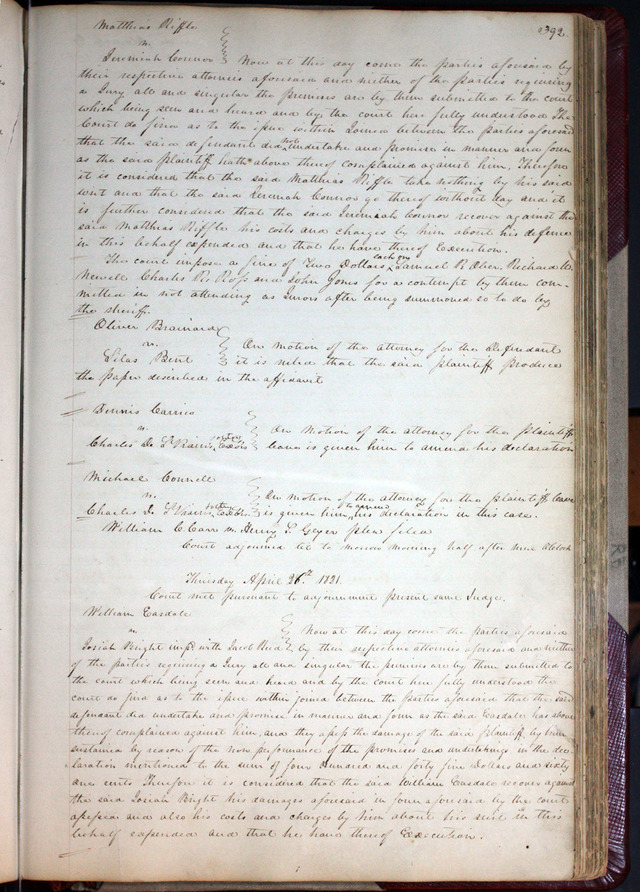 392
Matthias Riffle
vs.
Jeremiah Connor Now at this day come the parties aforesaid by
their respective attornies aforesaid and neither of the parties requiring
a Jury all and singular the premises are by them submitted to the court
which being seen and heard and by the court here fully understood The
Court do find as to the issue within Joined between the parties aforesaid
that the said defendant did not undertake and promise in manner and form
as the said plaintiff hath above thereof complained against him. Therefore
it is considered that the said Matthias Riffle take nothing by his said
writ and that the said Jeremiah Connor go thereof without day and it
is further considered that the said Jeremiah Connor recover against the
said Matthias Riffle his costs and charges by him about his defence
in this behalf expended and that he have thereof Execution.
The court impose a fine of Two Dollars each on Samuel R. Ober, Richard W.
Newell Charles and John Jones for a contempt by them com-
mitted in not attending as Jurors after being summoned so to do by
the sheriff.
Oliver Brainard
vs.
Silas Bent On motion of the attorney for the defendant
it is ruled that the said plaintiff produce
the paper described in the affidavit
Dennis Carrico
vs.
Charles De On Motion of the attorney for the plaintiff
leave is given him to amend his declaration
Michael Connell
vs.
Charles De On motion of the attorney for the plaintiff leave
is given him to amend his declaration in this case.
William C. Carr vs. Henry S. Geyer pleas filed
Court adjourned till to morrow morning half after nine Oclock
Thursday April 26th. 1821.
Court met pursuant to adjournment present same Judge.
William Easdale
vs.
Josiah Bright impd. with Jacob Now at this day come the parties aforesaid
by their respective attornies aforesaid and neither
of the parties requiring a Jury all and singular the premises are by them submitted to
the court which being seen and heard and by the court here fully understood the
court do find as to the issue within joined between the parties aforesaid that the said
defendant did undertake and promise in manner and form as the said Easdale has above
thereof complained against him, and they assess the damage of the said plaintiff by him
sustained by reason of the non performance of the promises and undertakings in the dec-
laration mentioned to the sum of four hundred and forty five dollars and sixty
one cents Therefore it is considered that the said William Easdale recover against
the said Josiah Bright his damages aforesaid in form aforesaid by the court
assessed and also his costs and charges by him about his suit in this
behalf expended and that he have thereof Execution.